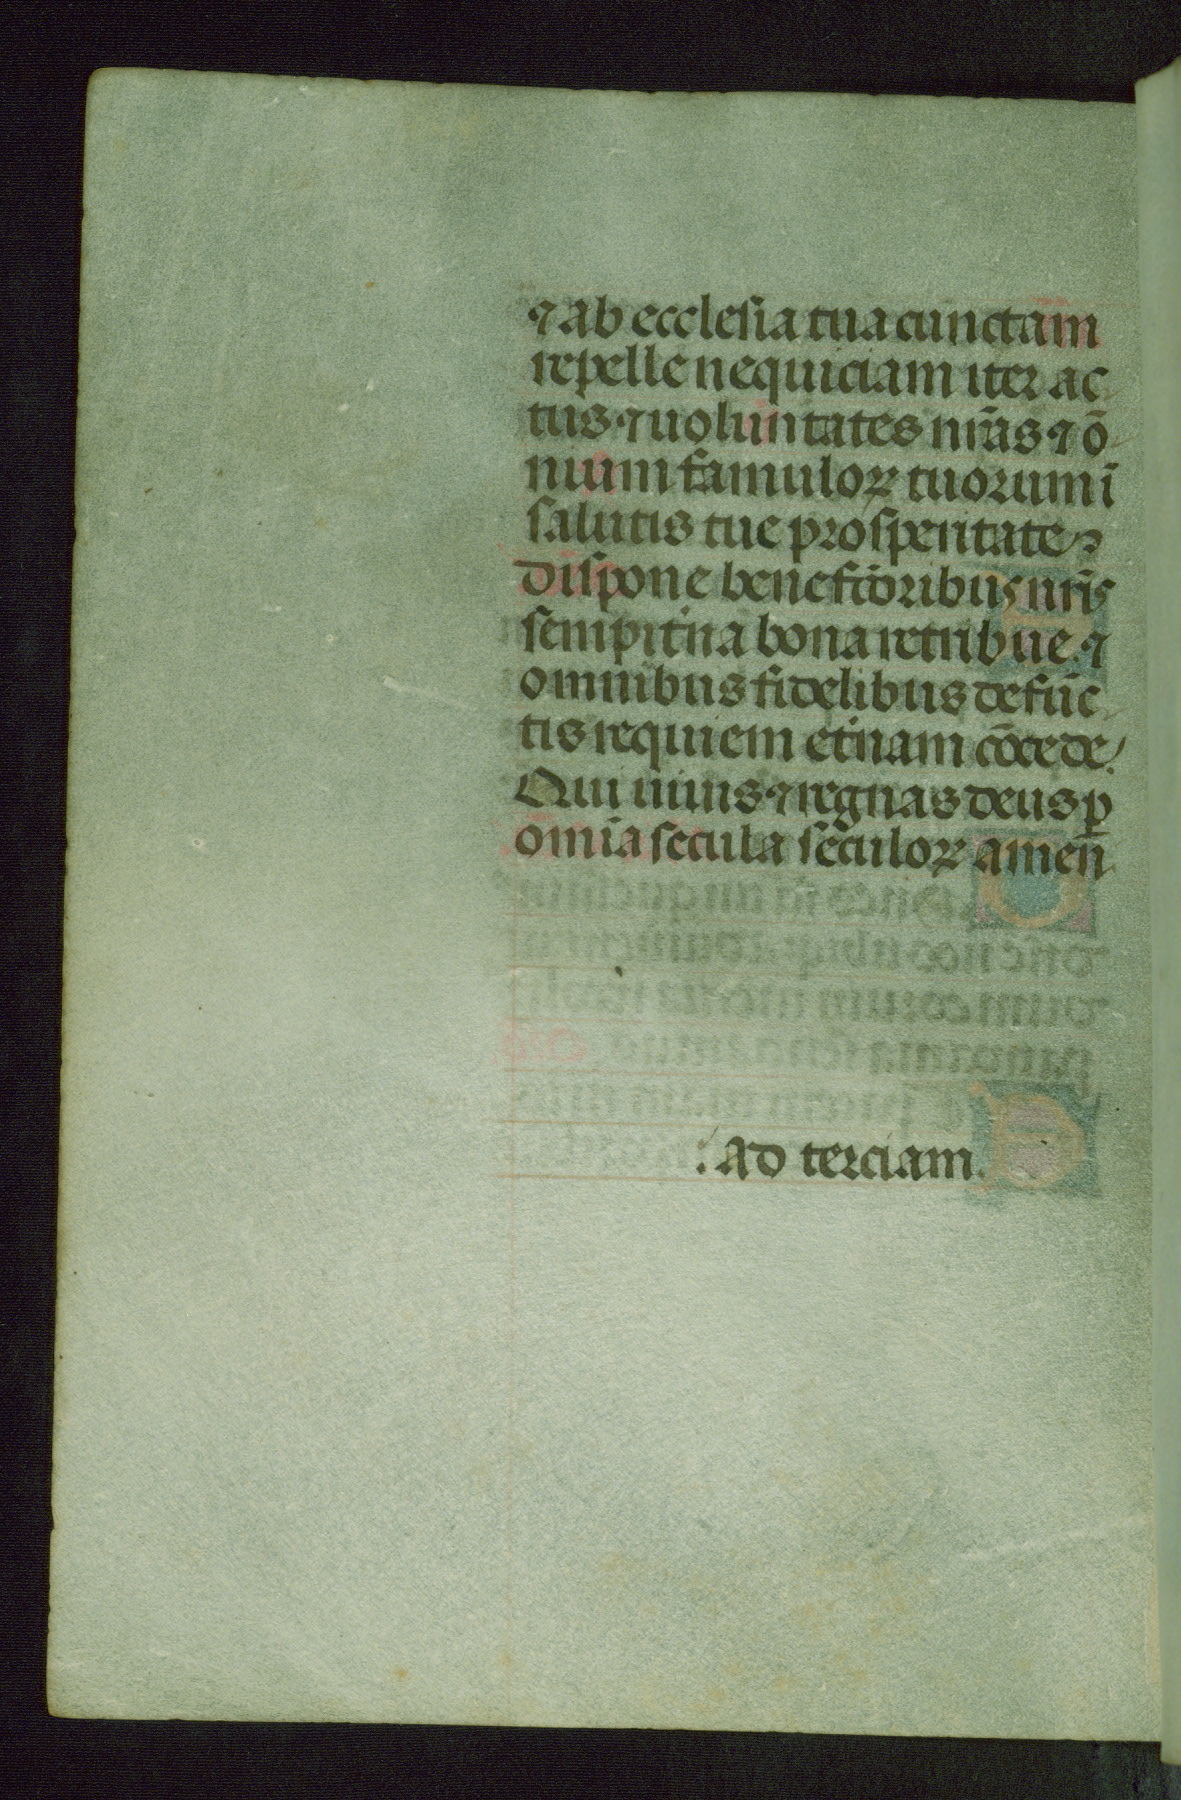 ⁊ ab ecclesia tua cunctam
repelle nequiciam iter ac
tus ⁊ uoluntates nr̃as ⁊ õ
nium famuloꝝ tuorum ĩ
salutis tue prosperitate
dispone benefc̃oribus nr̃is
sempit̃na bona retribue. ⁊
omnibus fidelibus defũc
tis requiem et̃nam cõcede.
Qui uiuis ⁊ regnas deus ꝑ
om̃ia secula sec̃uloꝝ amen
: Ad terciam.